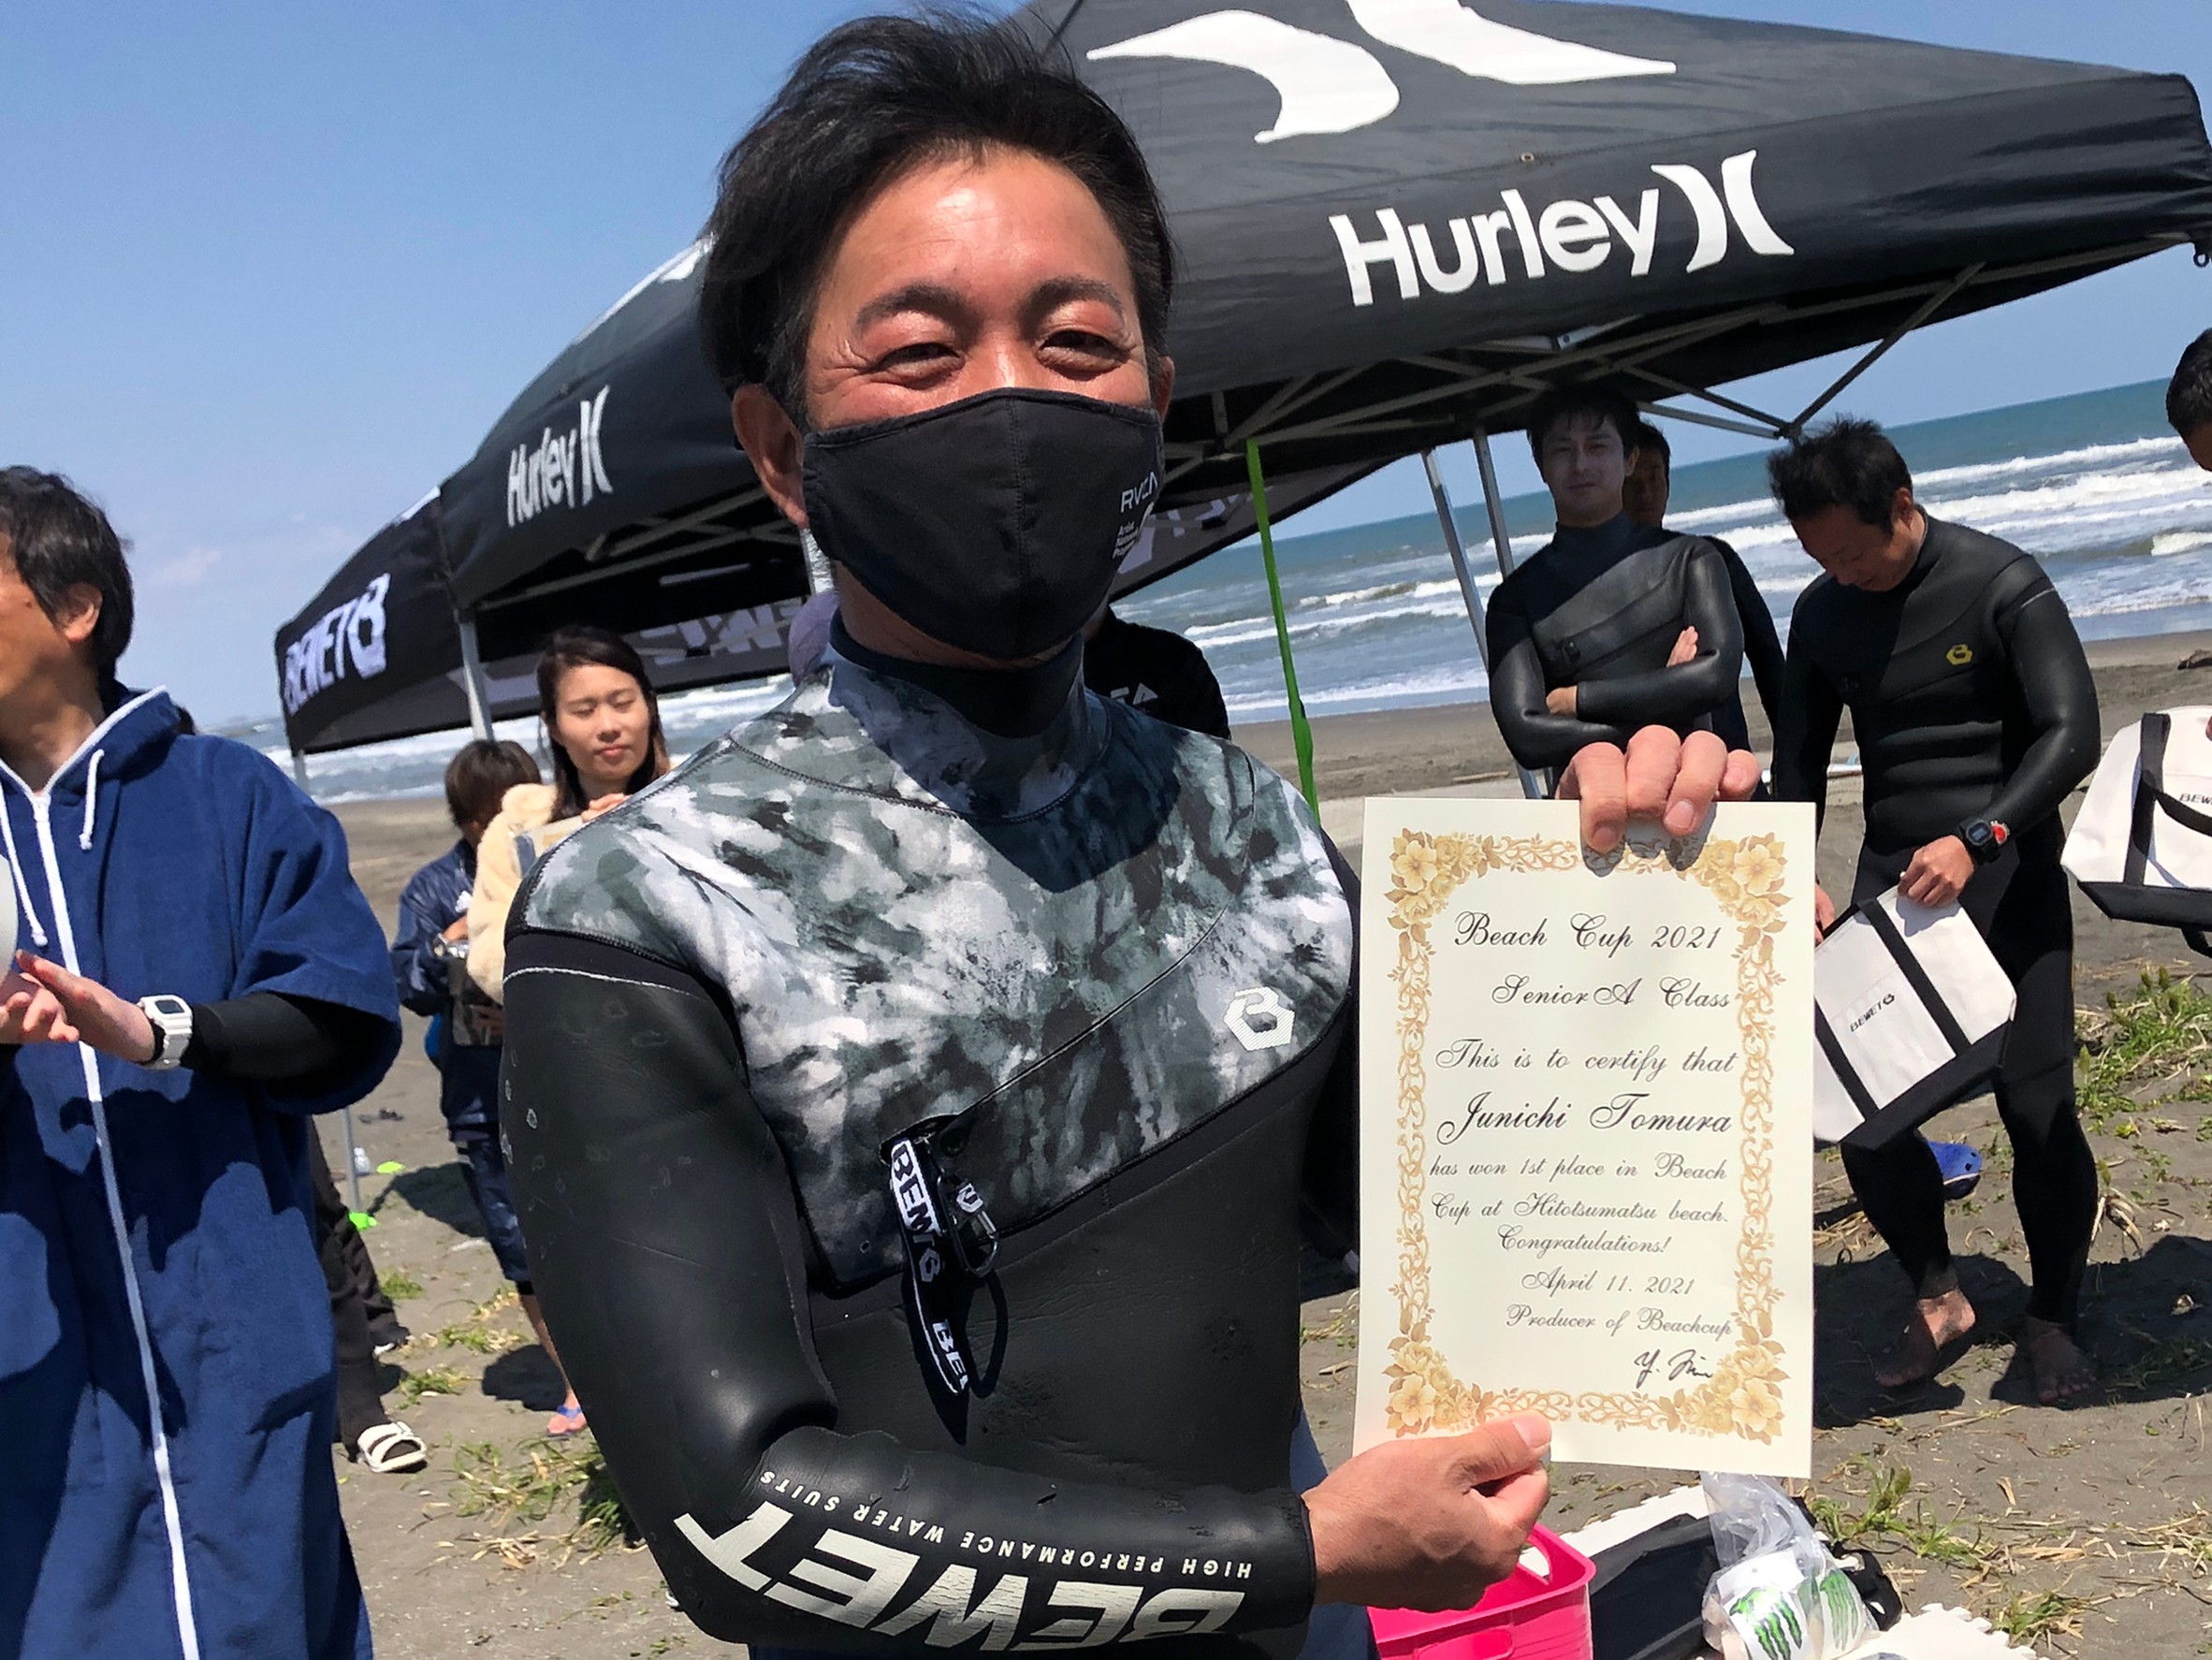 Hurley
Hurley
BEWET
RVCA
Beach Cup 2021
Senior A Class
This is to certify that
Junichi Tomura
has won 1st place in Beach
Cup at Hitotsumatsu beach.
Congratulations!
April 11. 2021
Producer of Beachcup
BEWET
BEWET
BEWET
HIGH PERFORMANCE WATER SUITS
BEWET